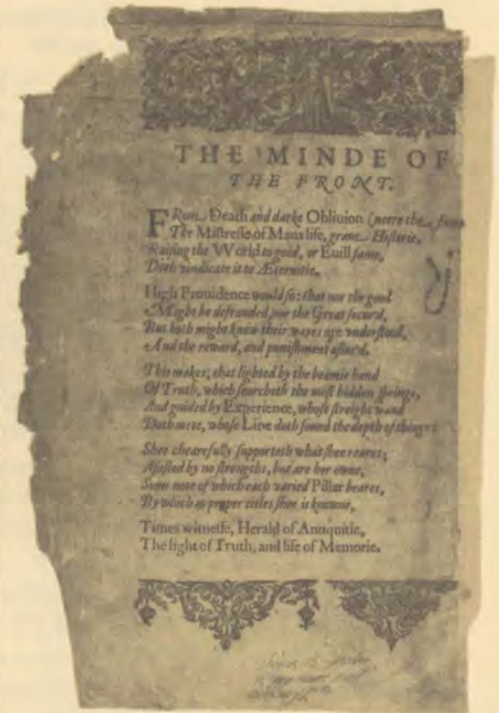 THE MINDE OF
THE FRONT.
FRom Death and darke Obliuion (neere the
The Mistresse of Mans life, graue Historie,
Raising the World to good, or Euill fame,
Doth vindicate it to Æternitie.
High Prouidence would so: that nor the good
Might be defrauded, nor the Great secur'd,
But both might know their wayes are vnderstood,
And the reward, and punishment assur'd.
This makes, that lighted by the beamie hand
Of Truth, which searcheth the most hidden springs,
And guided by Experience, whose streight wand
Doth mete, whose Line doth sound the depth of things:
Shee chearefully supporteth what shee reares;
Assisted by no strengths, but are her owne,
Some note of which each varied Pillar beares,
By which as proper titles shee is knowne,
Times witnesse, Herald of Antiquitie,
The light of Truth, and life of Memorie.